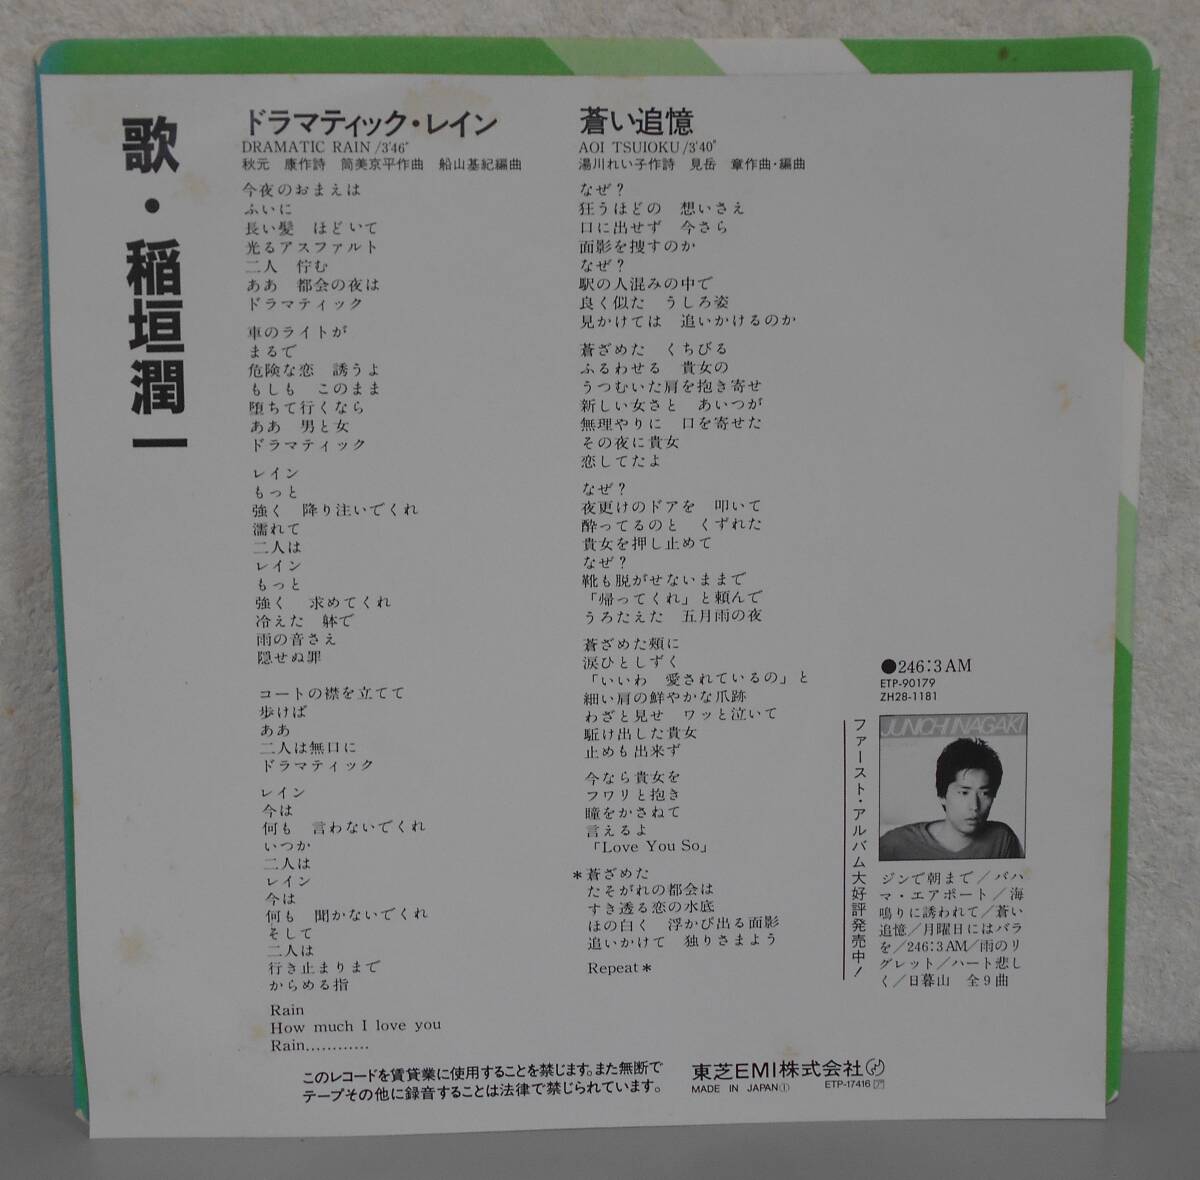 歌・稲垣潤一
ドラマティック・レイン
DRAMATIC RAIN/3'46"
秋元　康作詩　筒美京平作曲　船山基紀編曲
今夜のおまえは
ふいに
長い髪　ほどいて
光るアスファルト
二人　佇む
ああ　都会の夜は
ドラマティック
車のライトが
まるで
危険な恋　誘うよ
もしも　このまま
堕ちて行くなら
ああ　男と女
ドラマティック
レイン
もっと
強く　降り注いでくれ
濡れて
二人は
レイン
もっと
強く　求めてくれ
冷えた　躰で
雨の音さえ
隠せぬ罪
コートの襟を立てて
歩けば
ああ
二人は無口に
ドラマティック
レイン
今は
何も　言わないでくれ
いつか
二人は
レイン
今は
何も　聞かないでくれ
そして
二人は
行き止まりまで
からめる指
Rain
How much I love you
Rain…………
蒼い追憶
AOI TSUIOKU/3'40"
湯川れい子作詩　見岳　章作曲・編曲
なぜ？
狂うほどの　想いさえ
口に出せず　今さら
面影を捜すのか
なぜ？
駅の人混みの中で
良く似た　うしろ姿
見かけては　追いかけるのか
蒼ざめた　くちびる
ふるわせる　貴女の
うつむいた肩を抱き寄せ
新しい女さと　あいつが
無理やりに　口を寄せた
その夜に貴女
恋してたよ
なぜ？
夜更けのドアを　叩いて
酔ってるのと　くずれた
貴女を押し止めて
なぜ？
靴も脱がせないままで
「帰ってくれ」と頼んで
うろたえた　五月雨の夜
蒼ざめた頬に
涙ひとしずく
「いいわ　愛されているの」と
細い肩の鮮やかな爪跡
わざと見せ　ワッと泣いて
駈け出した貴女
止めも出来ず
今なら貴女を
フワリと抱き
瞳をかさねて
言えるよ
「Love You So」
＊蒼ざめた
たそがれの都会は
すき透る恋の水底
ほの白く　浮かび出る面影
追いかけて　独りさまよう
Repeat＊
●246:3AM
ETP-90179
ZH28-1181
ファースト・アルバム大好評発売中！
JUNICHI INAGAKI
ジンで朝まで／バハ
マ・エアポート／海
鳴りに誘われて／蒼い
追憶／月曜日にはバラ
を／246:3AM／雨のリ
グレット／ハート悲し
く／日暮山　全9曲
このレコードを賃貸業に使用することを禁じます。また無断で
テープその他に録音することは法律で禁じられています。
東芝EMI株式会社
MADE IN JAPAN①　ETP-17416